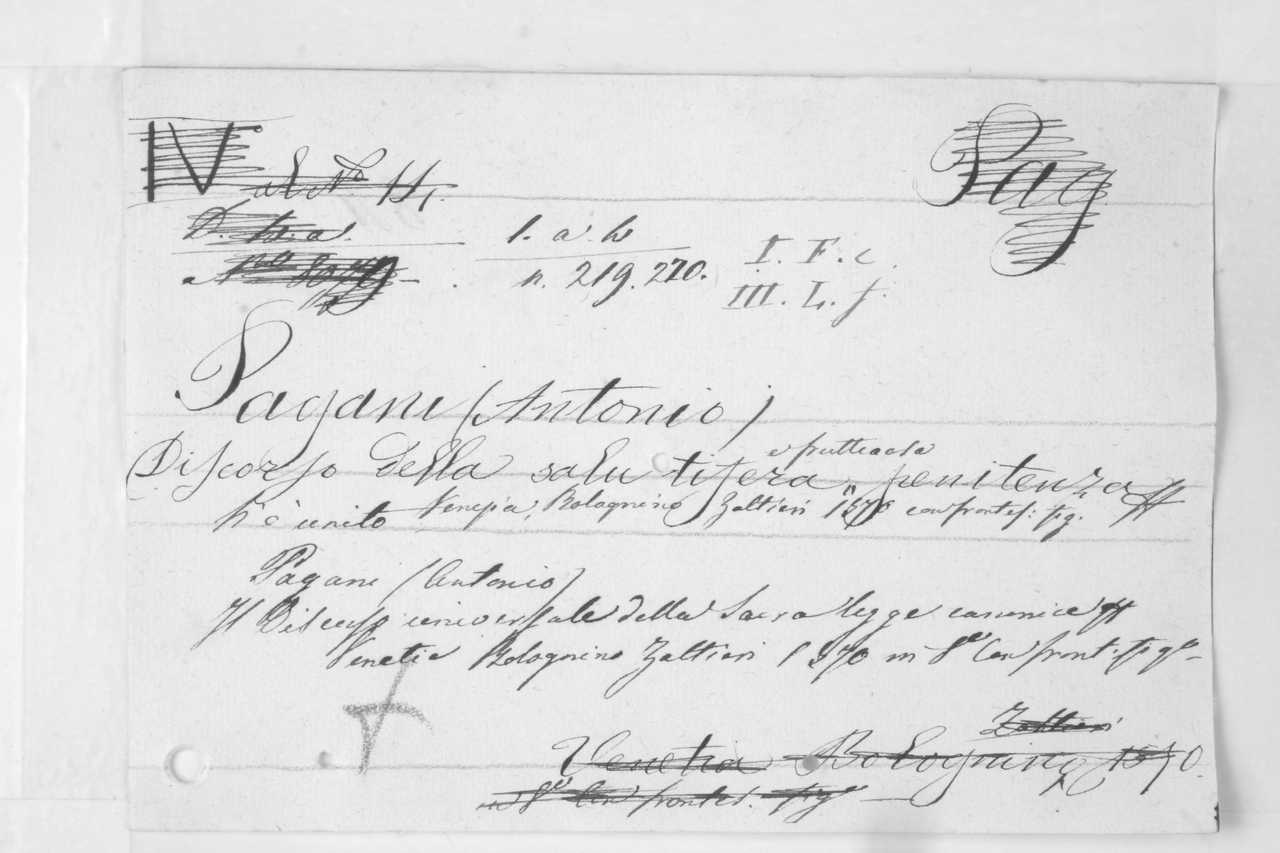 IV Pag
al No 14.
D. b. a. 1. a. h
No n. 219. 220. I. F. c.
III. L. f.
Pagani (Antonio)
Discorso della salutifera e frutticosa penitenza ff
h è unito Venezia, Bolognino Zaltieri 1570 con frontes: fig.
Pagani (Antonio)
Il Discorso universale della Sacra legge canonica ff
Venetia Bolognino Zaltieri 1570 in 8º Con front: fig
Zaltieri
Venetia Bolognino 1570.
in 8º Con frontes. fig